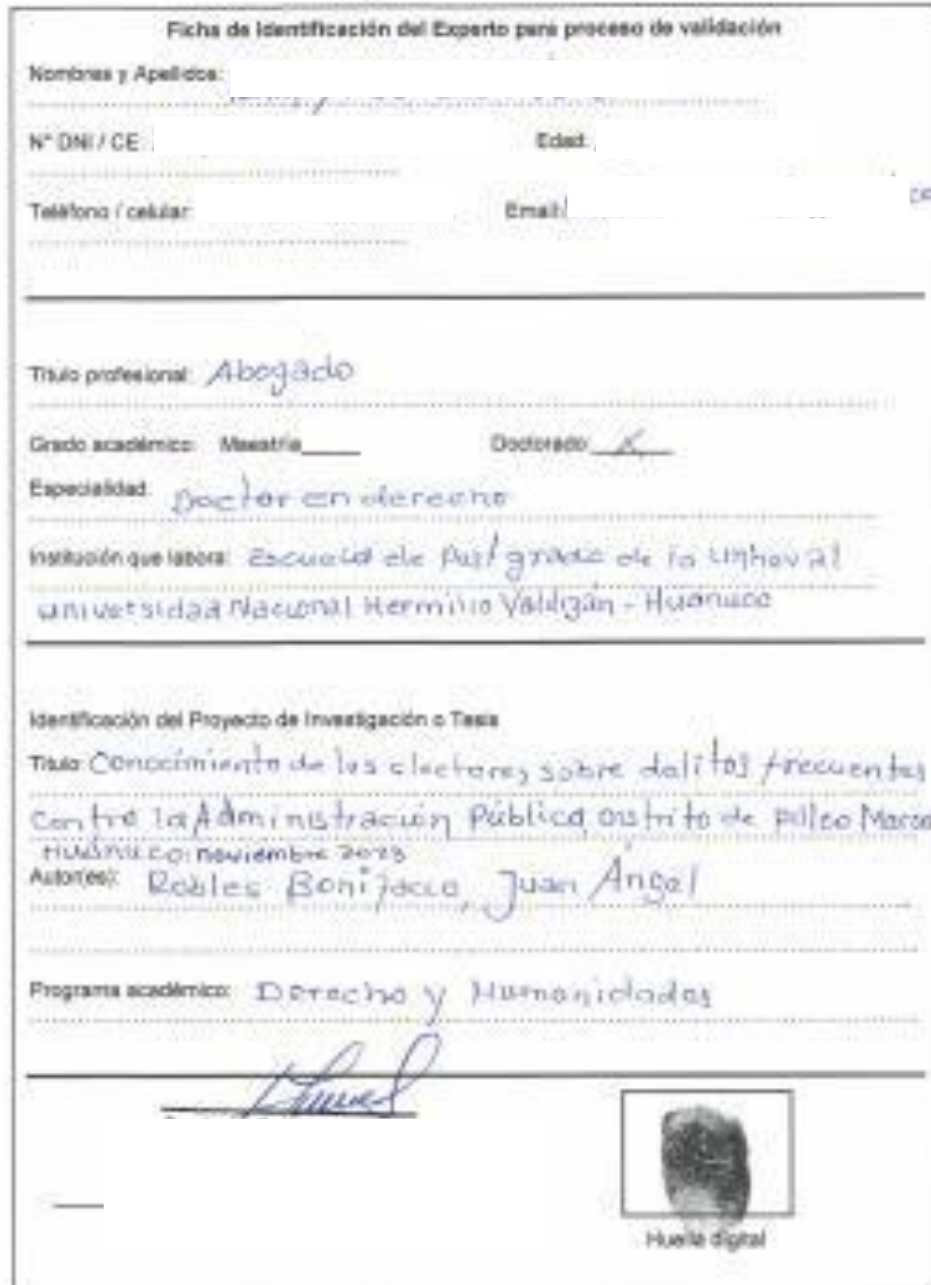 Ficha de Identificación del Experto para proceso de validación
Nombres y Apellidos:
N° DNI / CE: Edad:
Teléfono / celular: Email:
Título profesional: Abogado
Grado académico: Maestría____ Doctorado: X
Especialidad: Doctor en derecho
Institución que labora: Escuela de Postgrado de la Unheval
Universidad Nacional Hermilio Valdizán - Huánuco
Identificación del Proyecto de Investigación o Tesis
Título: Conocimiento de los electores sobre delitos frecuentes
contra la Administración Pública, distrito de Pillco Marca
Huánuco: noviembre 2023
Autor(es): Robles Bonifacio, Juan Ángel
Programa académico: Derecho y Humanidades
Huella digital